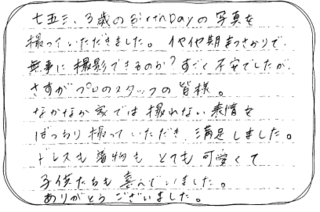 七五三、3歳のBirthDayの写真を
撮っていただきました。イヤイヤ期まっさかりで、
無事に撮影できるのか？すごく不安でしたが、
さすがプロのスタッフの皆様。
なかなか家では撮れない表情を
ばっちり撮っていただき、満足しました。
ドレスも着物も とても可愛くて
子供たちも 喜んでいました。
ありがとうございました。